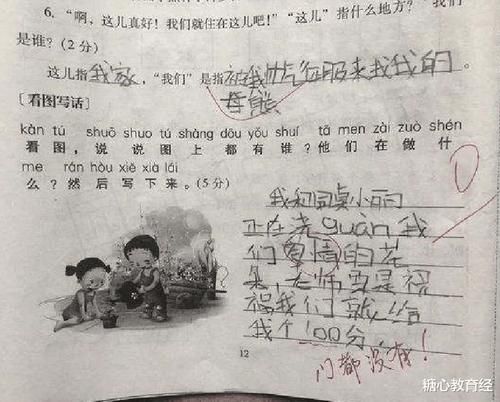 6. “啊,这儿真好!我们就住在这儿吧!”“这儿”指什么地方?“我们”
是谁?(2分)
这儿指我家,“我们”是指被我帅气征服来找我的
母熊。
[看图写话]
kàn tú shuō shuo tú shàng dōu yǒu shuí tā men zài zuò shén
看图,说说图上都有谁?他们在做什
me rán hòu xiě xià lái
么?然后写下来。(5分)
0
我和同桌小丽
正在浇guàn我
们爱情的花
朵,老师要是祝
福我们就给
我个100分。
12
门都没有!
搪心教育经